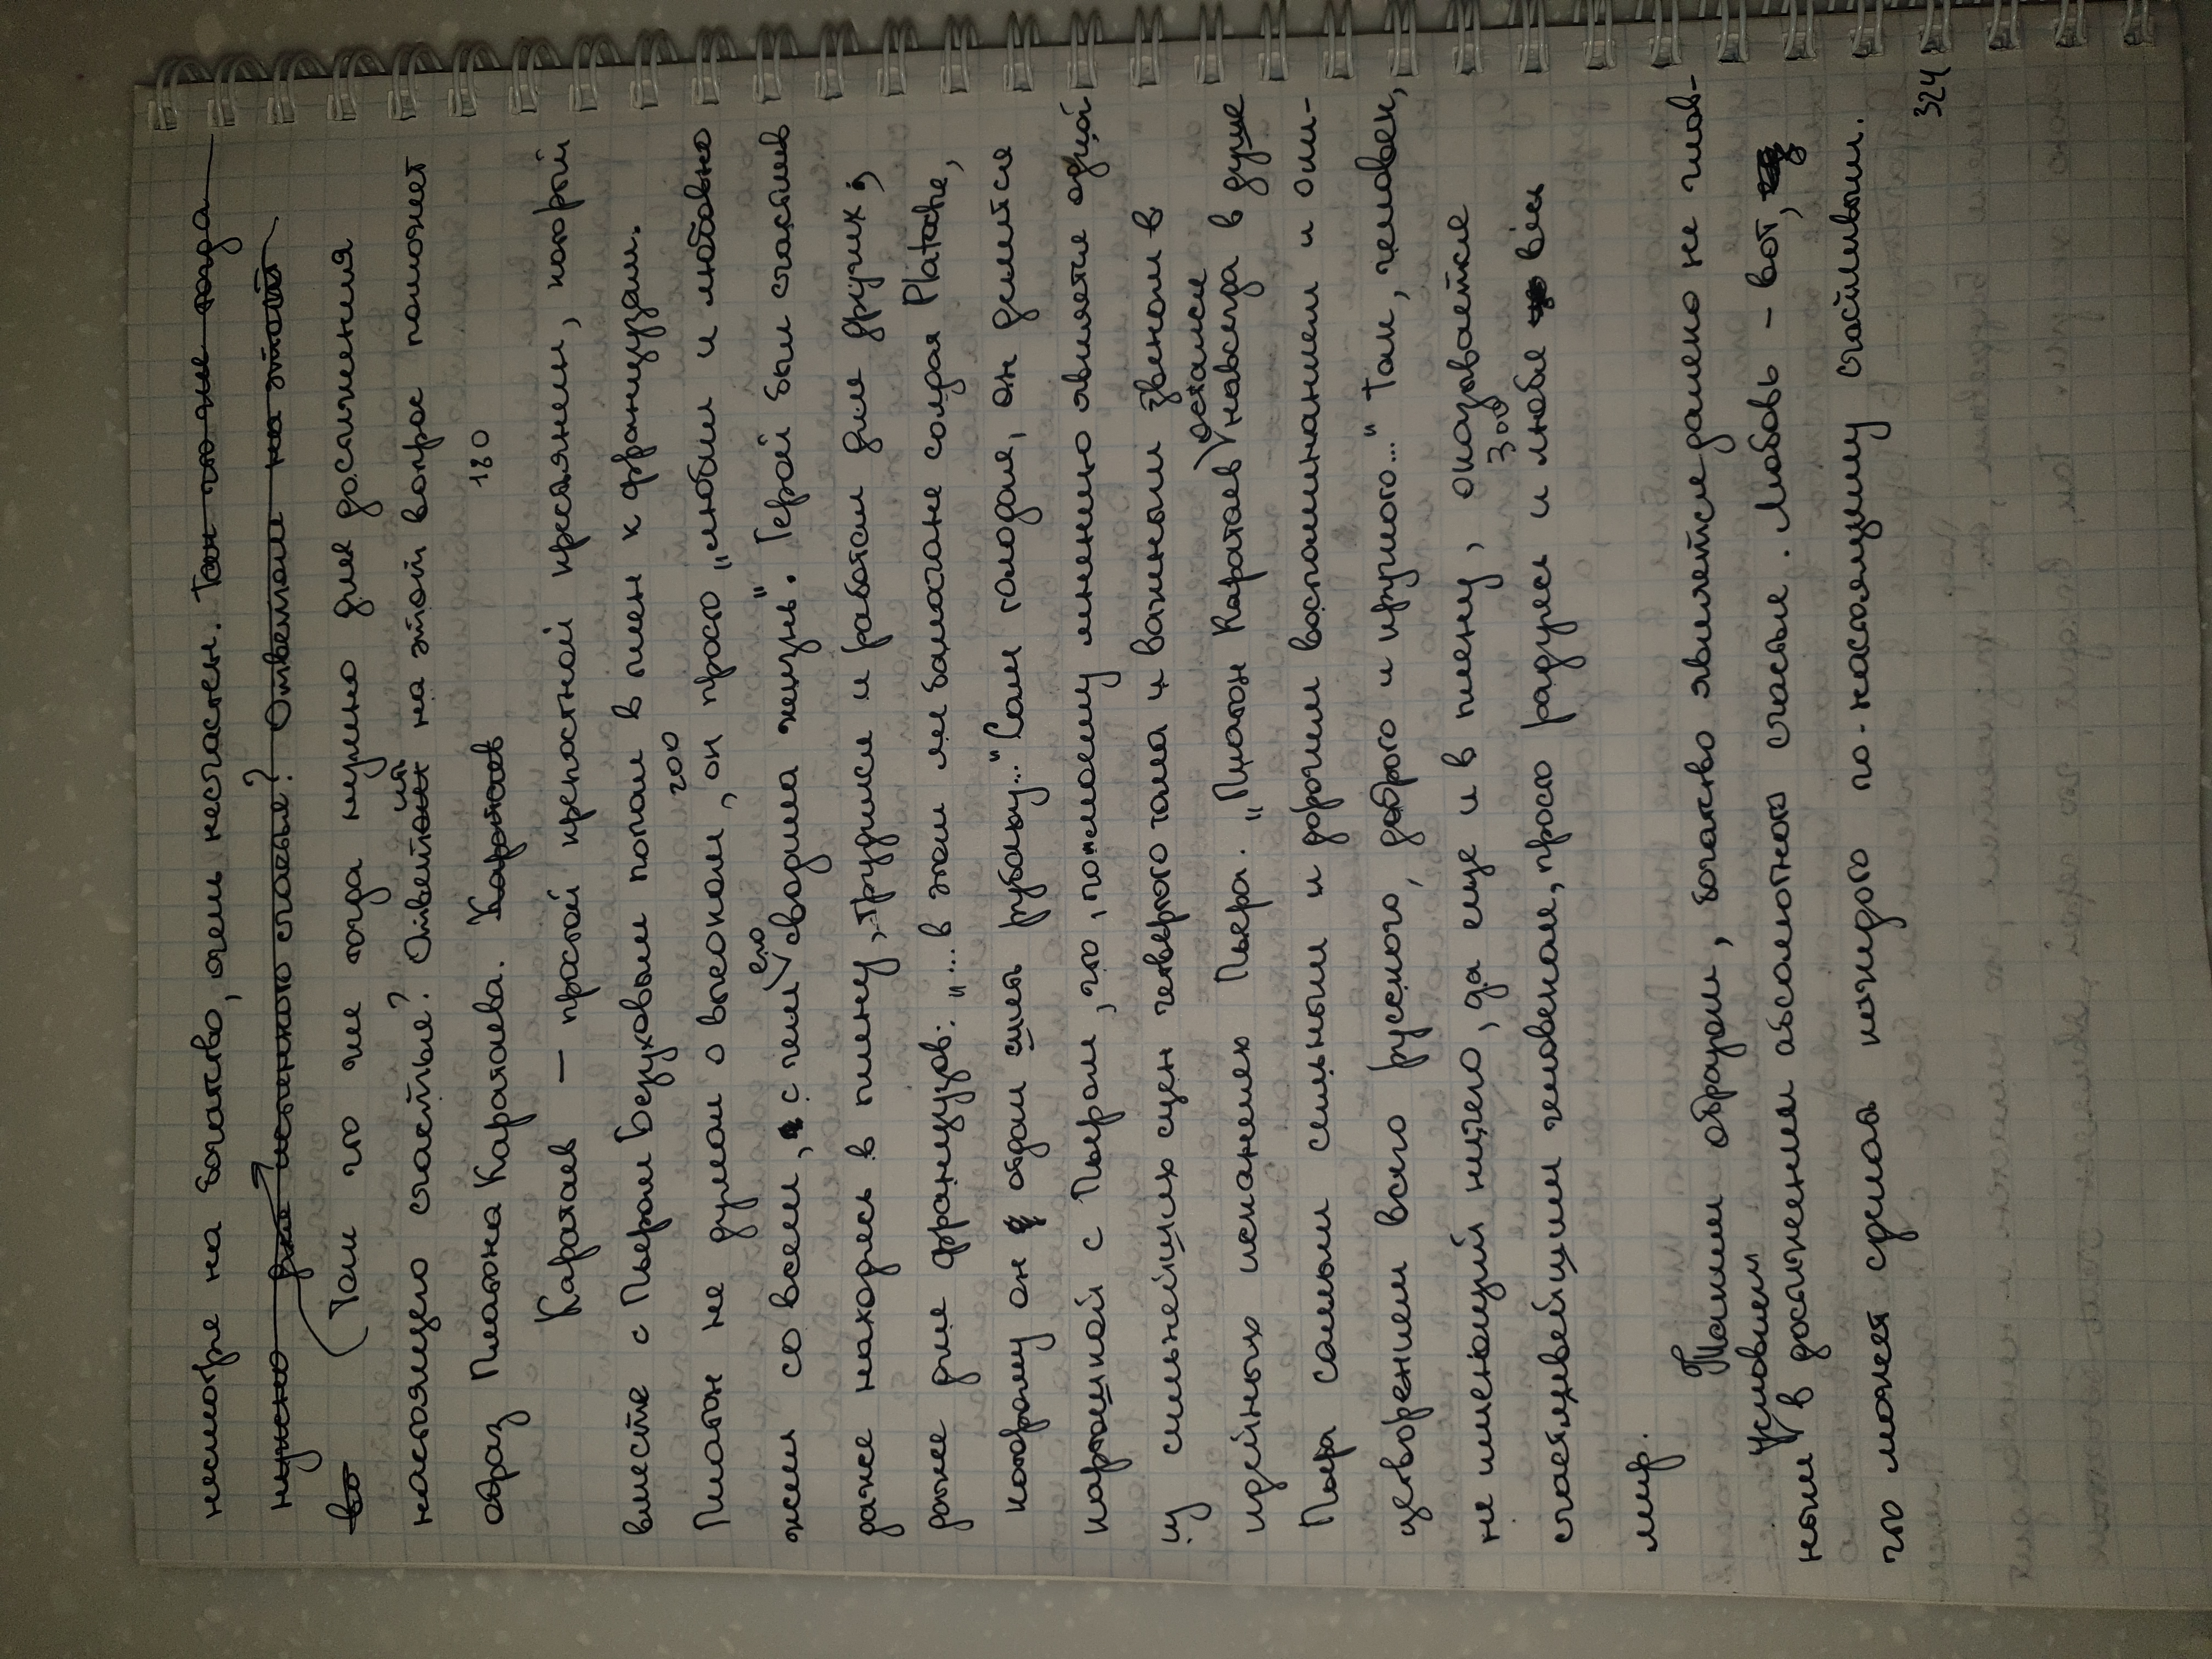 несмотря на богатство, очень несчастен. Так что же тогда
нужно для истинного счастья? Ответом на этот
во (Так что же тогда нужно для достижения
настоящего счастья? Ответить на этой вопрос поможет
образ Платона Каратаева. Каратаев 180
Каратаев — простой крепостной крестьянин, который
вместе с Пьером Безуховым попал в плен к французам.
Платон не думал о высоком, он 200 просто „любил и любовно
жил со всем, с чем его сводила жизнь". Герой был счастлив
даже находясь в плену, трудился и работал для других,
даже для французов: „...в этом же балагане солдат Platoche,
которому он отдал шить рубаху..." Сам голодая, он делится
картошкой с Пьером, что, по-моему мнению является одной
из сильнейших сцен четвертого тома и важным звеном в
идейных исканиях Пьера. „Платон Каратаев остался навсегда в душе
Пьера самым сильным и дорогим воспоминанием и оли-
цетворением всего русского, доброго и круглого..." Так, человек,
не имеющий ничего, да еще и в плену, оказывается
счастливейшим человеком, просто радуясь и любя 300 весь
мир.
Таким образом, богатство является далеко не глав-
ным условием в достижении абсолютного счастья. Любовь – вот,
что может сделать каждого по-настоящему счастливым.
324